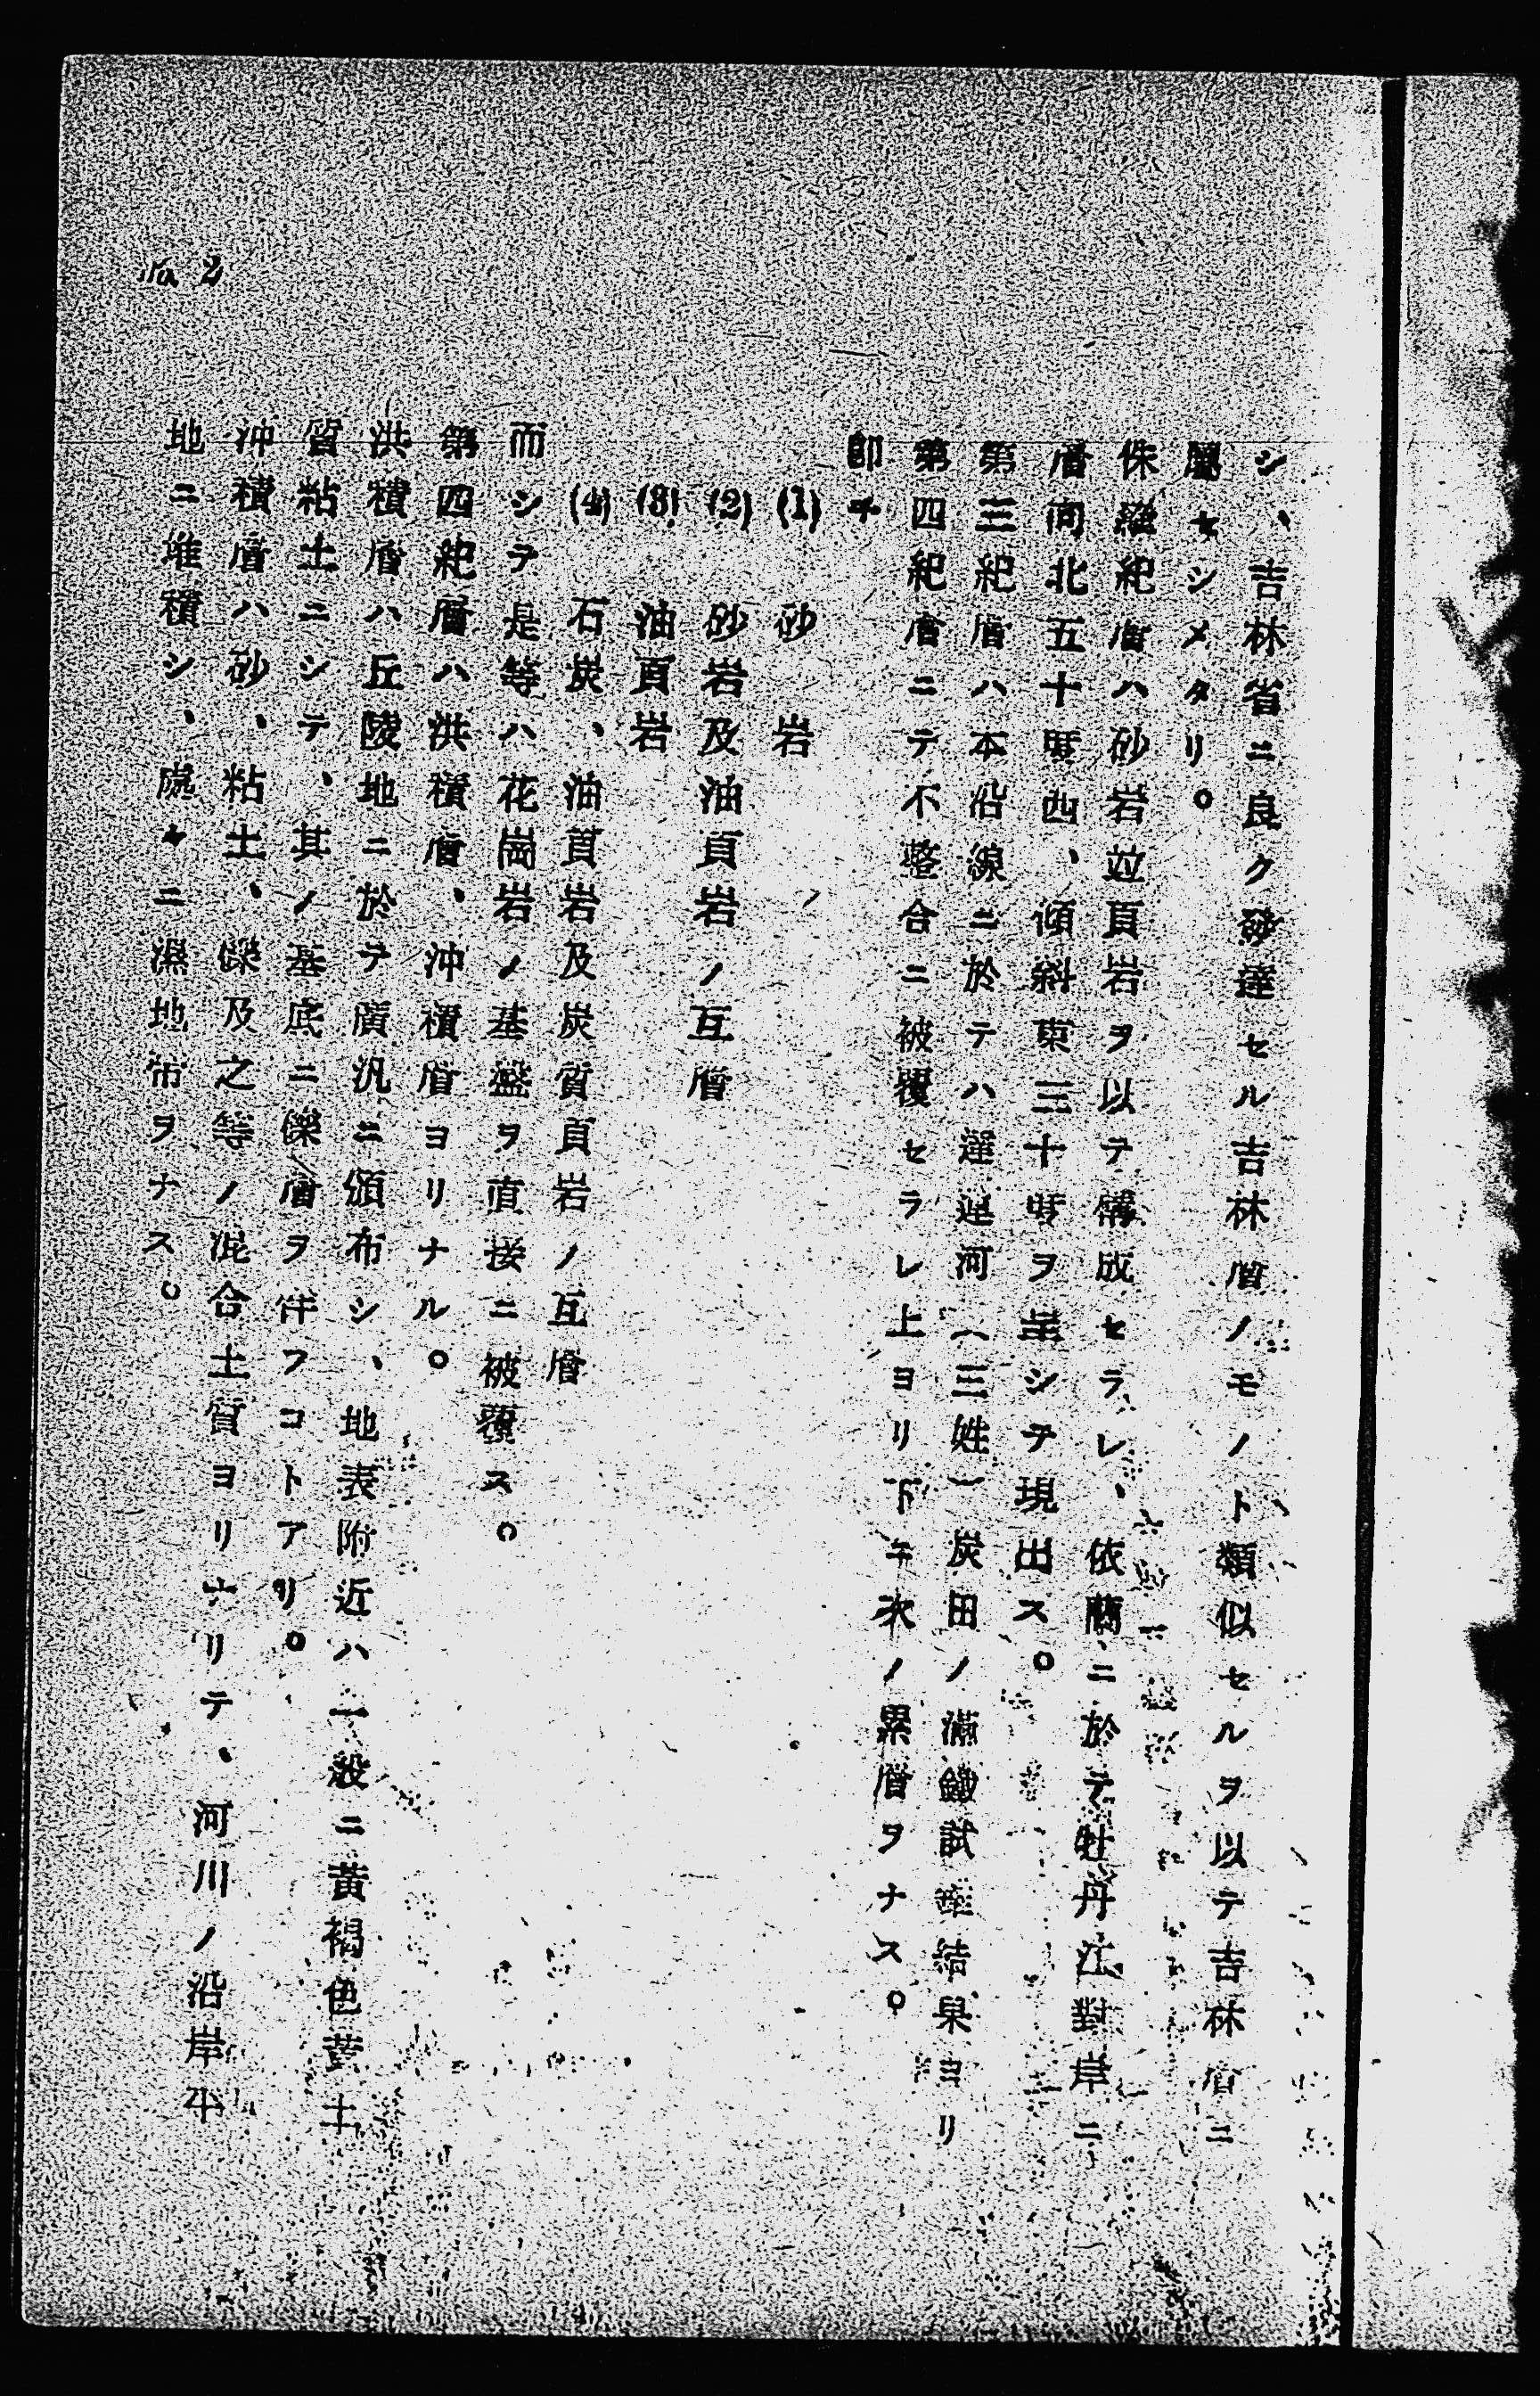 シ、吉林省ニ良ク發達セル吉林層ノモノト類似セルヲ以テ吉林層ニ
屬セシメタリ。
侏羅紀層ハ砂岩竝頁岩ヲ以テ構成セラレ、依蘭ニ於テ牡丹江對岸ニ
層向北五十度西、傾斜東三十度ヲ呈シテ現出ス。
第三紀層ハ本沿線ニ於テハ達連河(三姓)炭田ノ滿鐵試錐結果ヨリ
第四紀層ニテ不整合ニ被覆セラレ上ヨリ下ヘ次ノ累層ヲナス。
即チ
(1) 砂岩
(2) 砂岩及油頁岩ノ互層
(3) 油頁岩
(4) 石炭、油頁岩及炭質頁岩ノ互層
而シテ是等ハ花崗岩ノ基盤ヲ直接ニ被覆ス。
第四紀層ハ洪積層、沖積層ヨリナル。
洪積層ハ丘陵地ニ於テ廣汎ニ頒布シ、地表附近ハ一般ニ黃褐色黃土
質粘土ニシテ、其ノ基底ニ礫層ヲ伴フコトアリ。
沖積層ハ砂、粘土、礫及之等ノ混合土質ヨリナリテ、河川ノ沿岸平
地ニ堆積シ、處々ニ濕地帶ヲナス。
№ 2